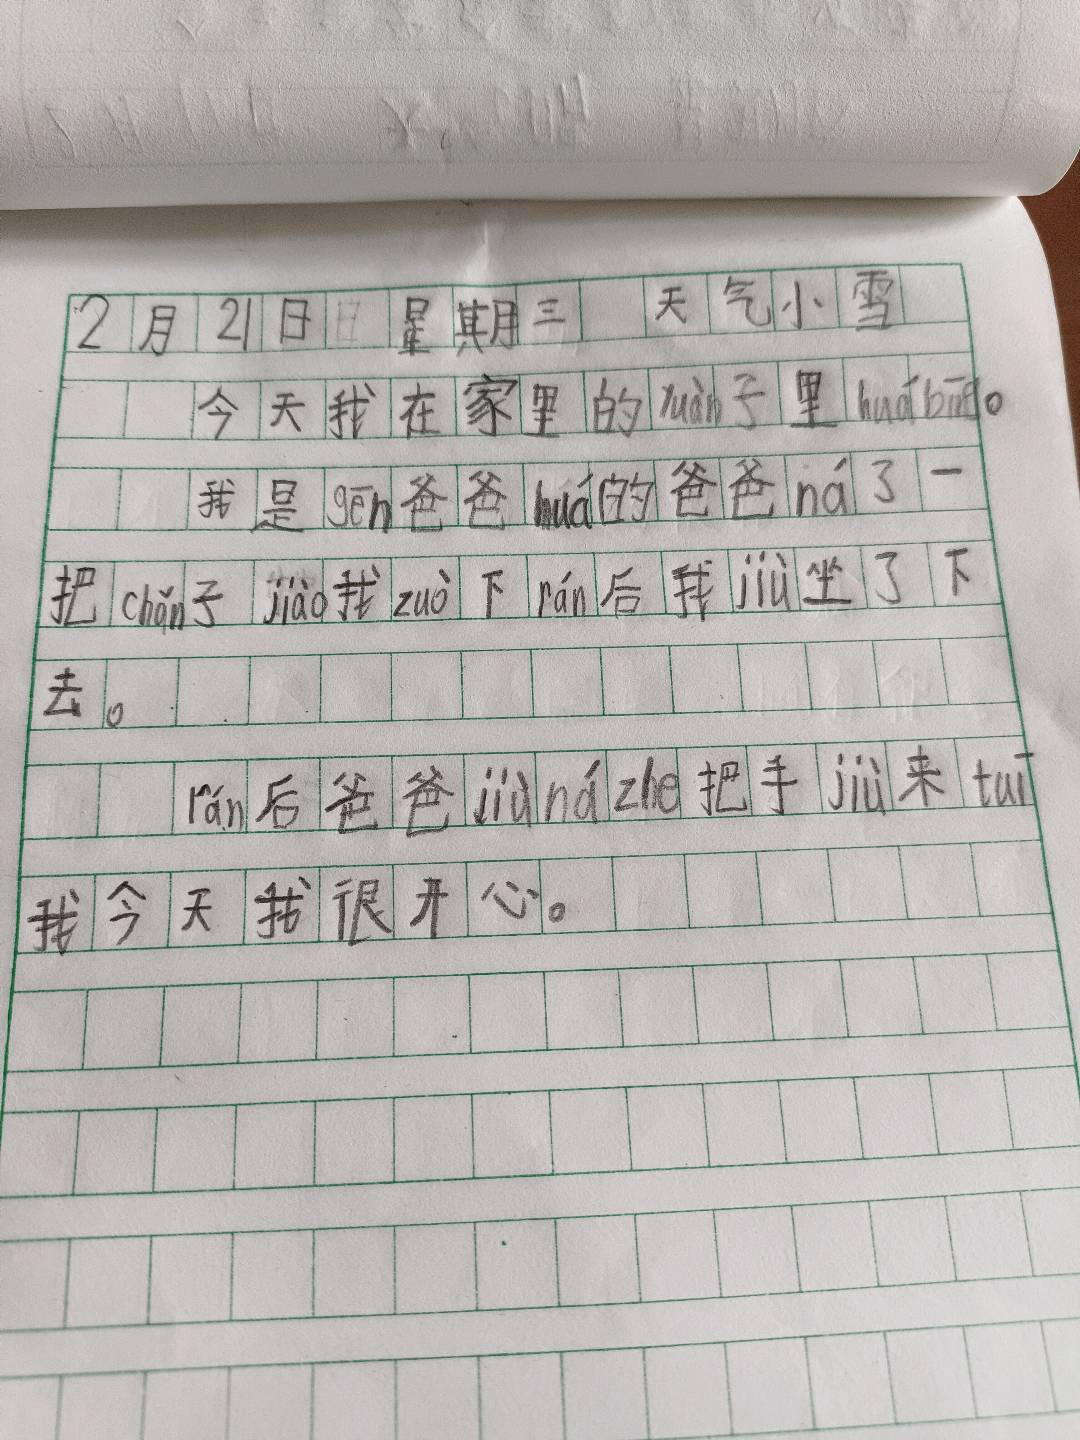 2月21日 星期三 天气小雪
今天我在家里的yuàn子里huábīng。
我是gēn爸爸huá的爸爸ná了一
把chǎn子jiào我zuò下rán后我jiù坐了下
去。
rán后爸爸jiùná zhe把手jiù来tuī
我今天我很开心。